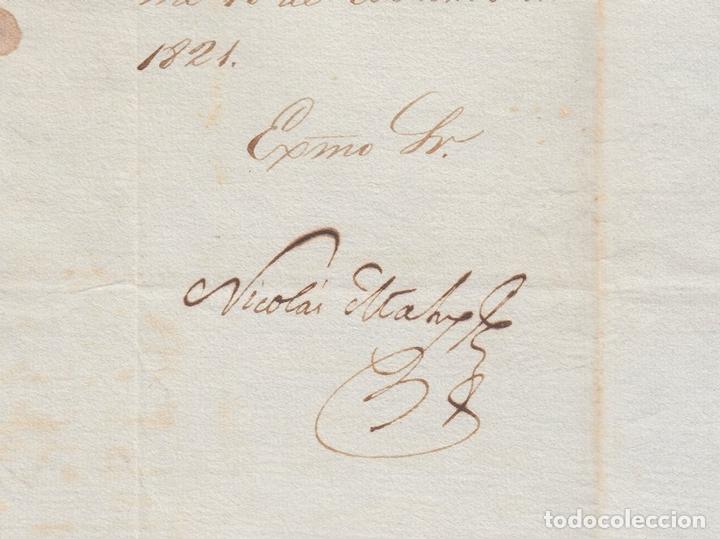 de
1821.
Exmo Sr.
Nicolás Mahy
todocoleccion